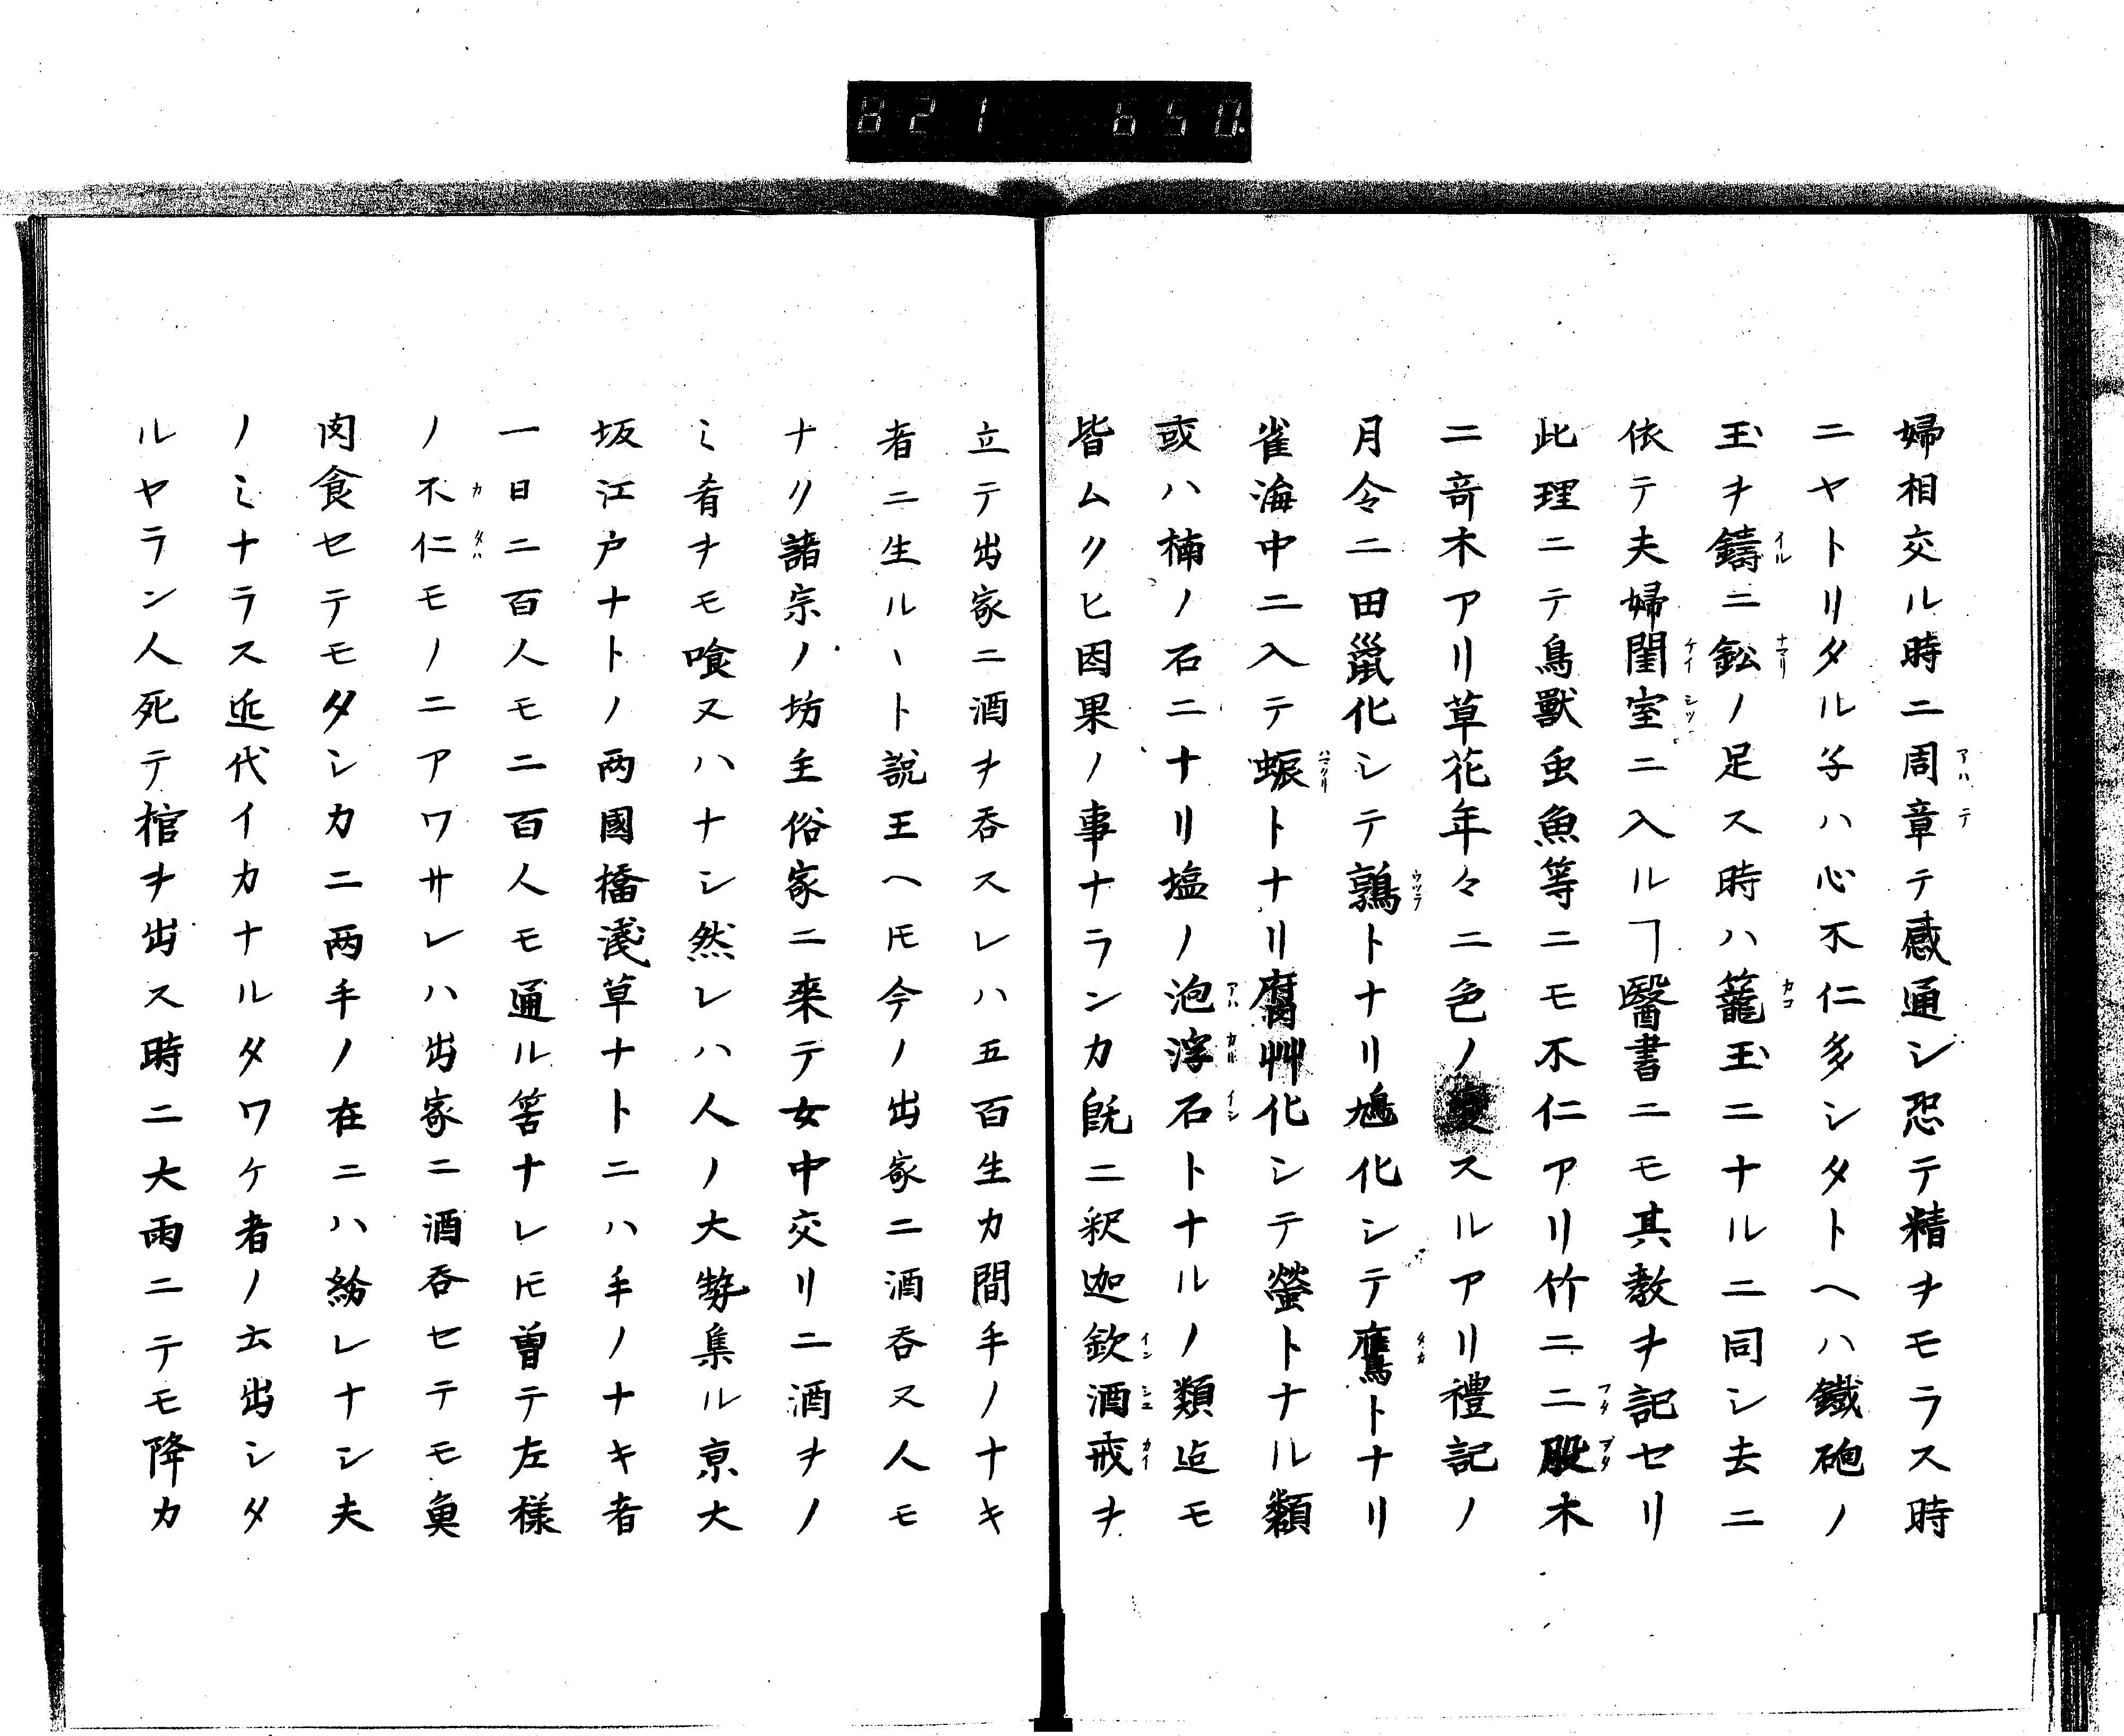 821 650.
婦相交ル時ニ周章テ感通シ恐テ精ヲモラス時
ニヤトリタル子ハ心不仁多シタトヘハ鐵砲ノ
玉ヲ鑄ニ鈆ノ足ス時ハ籠玉ニナルニ同シ去ニ
依テ夫婦閨室ニ入ルヿ醫書ニモ其教ヲ記セリ
此理ニテ鳥獸虫魚等ニモ不仁アリ竹ニ二股木
ニ竒木アリ草花年々ニ色ノ変スルアリ禮記ノ
月令ニ田鼠化シテ鶉トナリ鳩化シテ鷹トナリ
雀海中ニ入テ蜄トナリ腐艸化シテ螢トナル類
或ハ楠ノ石ニナリ塩ノ泡浮石トナルノ類迠モ
皆ムクヒ因果ノ事ナランカ既ニ釈迦飲酒戒ヲ
立テ出家ニ酒ヲ呑スレハ五百生カ間手ノナキ
者ニ生ルヽト説王ヘ𪜈今ノ出家ニ酒呑ヌ人モ
ナク諸宗ノ坊主俗家ニ來テ女中交リニ酒ヲノ
ミ肴ヲモ喰ヌハナシ然レハ人ノ大勢集ル京大
坂江戸ナトノ両國橋淺草ナトニハ手ノナキ者
一日ニ百人モ二百人モ通ル筈ナレ𪜈曽テ左様
ノ不仁モノニアワサレハ出家ニ酒呑セテモ魚
肉食セテモタシカニ両手ノ在ニハ紛レナシ夫
ノミナラス近代イカナルタワケ者ノ云出シタ
ルヤラン人死テ棺ヲ出ス時ニ大雨ニテモ降カ